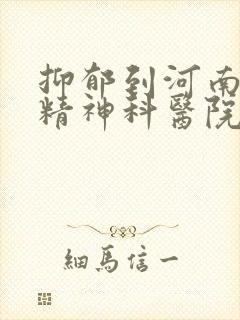 抑郁到河南
精神科醫院
細馬信一